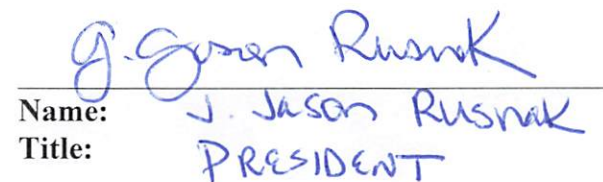 J. Jason Rusnak
Name: J. Jason Rusnak
Title: PRESIDENT